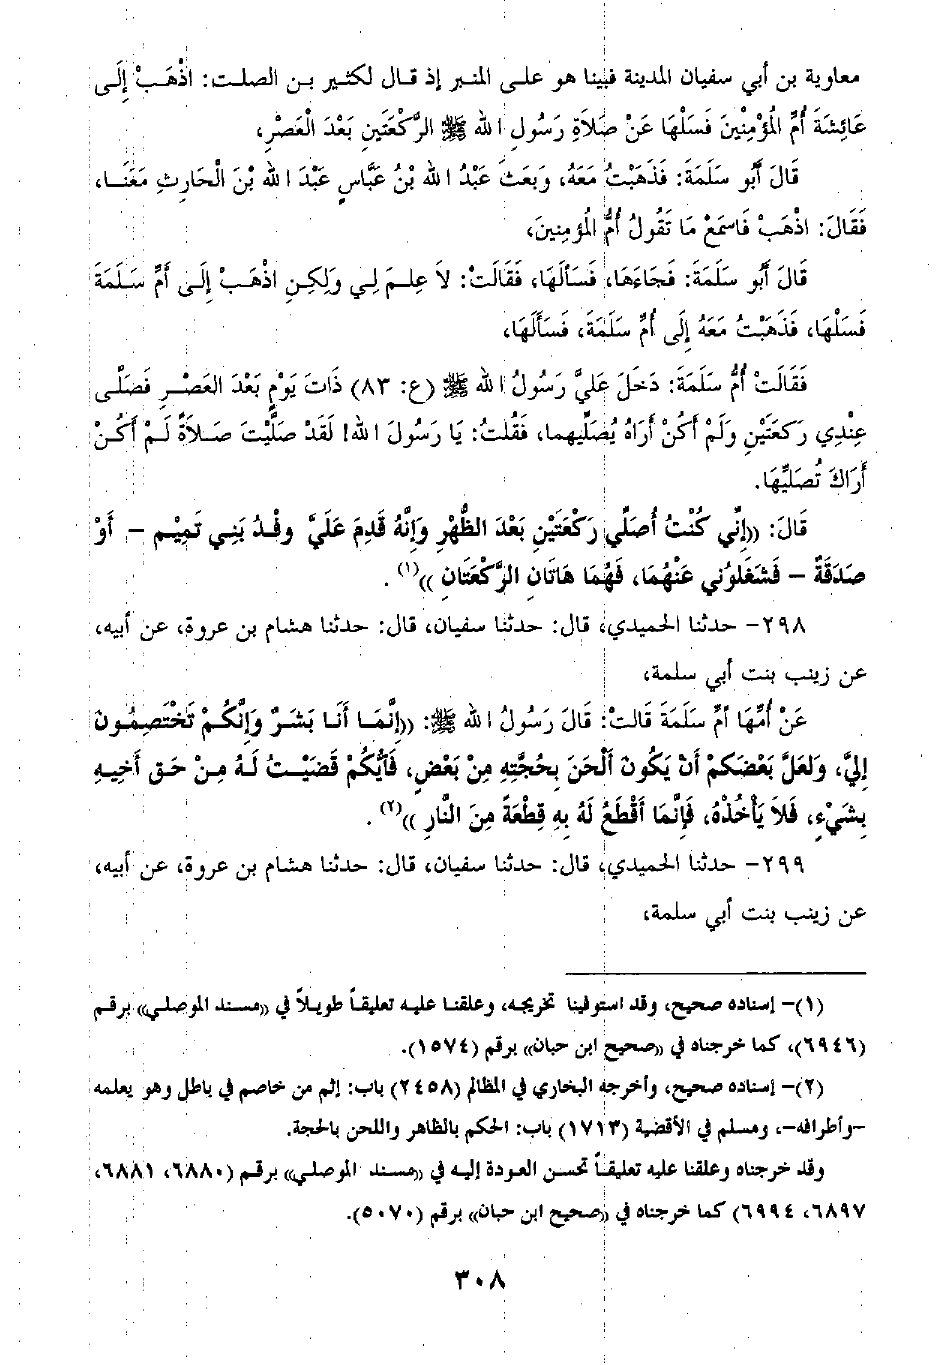 معاوية بن أبي سفيان المدينة فبينا هو على المنبر إذ قال لكثير بن الصلت: اذْهَبْ إِلَى
عَائِشَةَ أُمِّ الْمُؤْمِنْيِنَ فَسَلْهَا عَنْ صَلاَةِ رَسُولِ الله ﷺ الرَّكْعَتَينِ بَعْدَ الْعَصْرِ،
قَالَ أَبُو سَلَمَةَ: فَذَهَبْتُ مَعَهُ، وَبَعَثَ عَبْدُ الله بْنُ عَبَّاسٍ عَبْدَ الله بْنَ الْحَارِثِ مَعَنَا،
فَقَالَ: اذْهَبْ فَاسْمَعْ مَا تَقُولُ أُمُّ الْمُؤمِنِينَ،
قَالَ أَبُو سَلَمَةَ: فَجَاءَهَا، فَسَألَهَا، فَقَالَتْ: لاَ عِلمَ لِي وَلكِنِ اذْهَبْ إِلَى أُمِّ سَلَمَةَ
فَسَلْهَا، فَذَهَبْتُ مَعَهُ إِلَى أُمِّ سَلَمَةَ، فَسَأَلَهَا،
فَقَالَتْ أُمُّ سَلَمَةَ: دَخَلَ عَلَيَّ رَسُولُ الله ﷺ (ع: ٨٣) ذَاتَ يَوْمٍ بَعْدَ العَصْرِ فَصَلَّى
عِنْدِي رَكعَتَيْنِ وَلَمْ أَكُنْ أَرَاهُ يُصَلِّيهما، فَقُلتُ: يَا رَسُولَ الله! لَقَدْ صَلَّيْتَ صَلاَةً لَمْ أَكُنْ
أَرَاكَ تُصَلِيِّهَا.
قَالَ: ((إِنِّي كُنْتُ أُصَلِّي رَكْعَتَيْنِ بَعْدَ الظُّهْرِ وَإِنَّهُ قَدِمَ عَلَيَّ وفْدُ بَنِي تَمِيْمٍ - أَوْ
صَدَقَةٌ - فَشَغَلوُني عَنْهُمَا، فَهُمَا هَاتَانِ الرَّكْعَتَانِ))(١) .
٢٩٨- حدثنا الحميدي، قال: حدثنا سفيان، قال: حدثنا هشام بن عروة، عن أبيه،
عن زينب بنت أبي سلمة،
عَنْ أُمِّهَا أمِّ سَلَمَةَ قَالتْ: قَالَ رَسُولُ الله ﷺ: ((إِنَّمَا أَنَا بَشَرٌ وَإِنَّكُمْ تَخْتَصِمُونَ
إِليَّ، وَلَعَلَّ بَعْضَكمْ أَنْ يَكُونَ أَلْحَنَ بِحُجَّتِهِ مِنْ بَعْضٍ، فَأَيُّكُمْ قَضَيْتُ لَهُ مِنْ حَق أَخِيهِ
بِشَيْءٍ، فَلاَ يَأْخُذْهُ، فَإِنَّمَا أَقْطَعُ لَهُ بِهِ قِطْعَةً مِنَ النَّارِ))(٢) .
٢٩٩- حدثنا الحميدي، قال: حدثنا سفيان، قال: حدثنا هشام بن عروة، عن أبيه،
عن زينب بنت أبي سلمة،
(١)- إسناده صحيح، وقد استوفينا تخريجه، وعلقنا عليه تعليقاً طويلاً في ((مسند الموصلي)) برقم
(٦٩٤٦)، كما خرجناه في ((صحيح ابن حبان)) برقم (١٥٧٤).
(٢)- إسناده صحيح، وأخرجه البخاري في المظالم (٢٤٥٨) باب: إثم من خاصم في باطل وهو يعلمه
-وأطرافه-، ومسلم في الأقضية (١٧١٣) باب: الحكم بالظاهر واللحن بالحجة.
وقد خرجناه وعلقنا عليه تعليقاً تحسن العودة إليه في ((مسند الموصلي)) برقم (٦٨٨٠، ٦٨٨١،
٦٨٩٧، ٦٩٩٤) كما خرجناه في ((صحيح ابن حبان)) برقم (٥٠٧٠).
٣٠٨